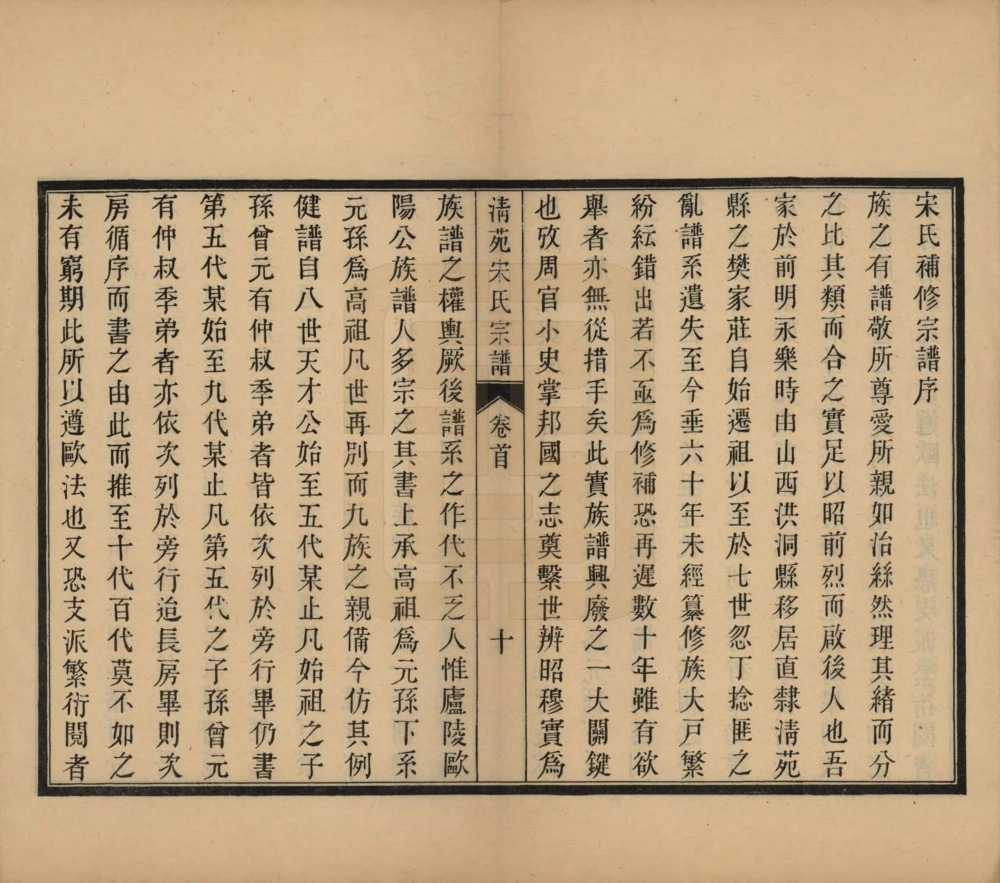 宋氏補修宗譜序
族之有譜敬所尊愛所親如治絲然理其緒而分
之比其類而合之實足以昭前烈而啟後人也吾
家於前明永樂時由山西洪洞縣移居直隸淸苑
縣之樊家莊自始遷祖以至於七世忽丁捻匪之
亂譜系遺失至今垂六十年未經纂修族大戸繁
紛紜錯出若不亟爲修補恐再遲數十年雖有欲
舉者亦無從措手矣此實族譜興廢之一大關鍵
也攷周官小史掌邦國之志奠繫世辨昭穆實爲
淸苑宋氏宗譜 卷首 十
族譜之權輿厥後譜系之作代不乏人惟廬陵歐
陽公族譜人多宗之其書上承高祖爲元孫下系
元孫爲高祖凡世再別而九族之親備今仿其例
健譜自八世天才公始至五代某止凡始祖之子
孫曾元有仲叔季弟者皆依次列於旁行畢仍書
第五代某始至九代某止凡第五代之子孫曾元
有仲叔季弟者亦依次列於旁行迨長房畢則次
房循序而書之由此而推至十代百代莫不如之
未有窮期此所以遵歐法也又恐支派繁衍閱者